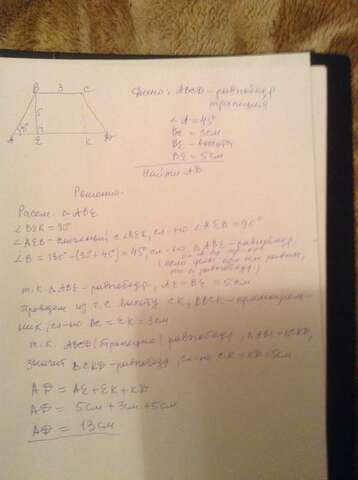 B 3 C
5
45°
A E K D
Дано: ABCD - равнобед
трапеция
∠A = 45°
BC = 3см
BE - высота
BE = 5см
Найти AD
Решение.
Рассм. △ABE
∠BEK = 90°
∠AEB - смежный с ∠BEK, сл-но ∠AEB = 90°
∠B = 180° - (90° + 45°) = 45°, сл-но △ABE - равнобед
(если углы при осн равны,
то △ равнобед.)
т.к. △ABE - равнобед, AE = BE = 5см
Проведем из т. C высоту CK, BBCK - прямоуголь-
ник, сл-но BC = EK = 3см
т.к. ABCD (трапеция) равнобед, △ABE = △CKD,
значит △CKD - равнобед, сл-но CK = KD = 5см
AD = AE + EK + KD
AD = 5см + 3см + 5см
AD = 13см